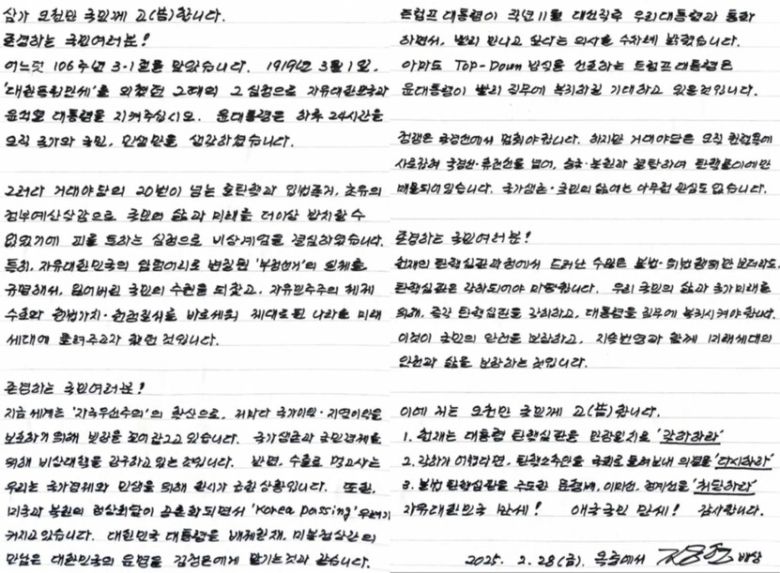 삼가 오천만 국민께 고(告)합니다.
존경하는 국민여러분!
어느덧 106주년 3·1절을 맞았습니다. 1919년 3월 1일,
'대한독립만세'를 외쳤던 그때의 그 심정으로 자유대한민국과
윤석열 대통령을 지켜주십시오. 윤대통령은 하루 24시간을
오직 국가와 국민, 민생만을 생각하셨습니다.
그러다 거대야당의 20번이 넘는 줄탄핵과 입법폭거, 초유의
정부예산삭감으로 국민의 삶과 미래를 더이상 방치할 수
없었기에 피를 토하는 심정으로 비상계엄을 결심하였습니다.
특히, 자유대한민국의 암덩어리로 변질된 '부정선거'의 실체를
규명해서, 잃어버린 국민의 주권을 되찾고, 자유민주주의 체제
수호와 헌법가치·헌정질서를 바로세워 제대로된 나라를 미래
세대에 물려주고자 했던 것입니다.
존경하는 국민여러분!
지금 세계는 '자국우선주의'의 확산으로, 저마다 국가이익·자국이익을
보호하기 위해 빗장을 걸어 잠그고 있습니다. 국가생존과 국민경제를
위해 비상대책을 강구하고 있는 것입니다. 반면, 수출로 먹고사는
우리는 국가경제와 민생을 위해 한시가 급한 상황입니다. 또한,
미국과 북한의 정상회담이 공론화되면서 'Korea passing' 우려가
커지고 있습니다. 대한민국 대통령을 배제한채, 미북정상간의
만남은 대한민국의 운명을 김정은에게 맡기는 것과 같습니다.
트럼프 대통령이 작년 11월 대선직후 우리대통령과 통화
하면서, 빨리 만나고 싶다는 의사를 수차례 밝혔습니다.
아마도 Top-Down 방식을 선호하는 트럼프 대통령은
윤대통령이 빨리 직무에 복귀하길 기대하고 있을것입니다.
정쟁은 국경선에서 멈춰야 합니다. 하지만 거대야당은 오직 권력욕에
사로잡혀 국경선·휴전선을 넘어, 중국·북한과 결탁하여 탄핵몰이에만
매몰되어있습니다. 국가생존·국민의 삶에는 아무런 관심도 없습니다.
존경하는 국민여러분!
헌재의 탄핵심판과정에서 드러난 수많은 불법·위법행위만 보더라도,
탄핵심판은 각하되어야 마땅합니다. 우리 국민의 삶과 국가미래를
위해, 즉각 탄핵심판을 각하하고, 대통령을 직무에 복귀시켜야 합니다.
이것이 국민의 안전을 보장하고, 지속번영과 함께 미래세대의
안전과 삶을 보장하는 것입니다.
이에 저는 오천만 국민께 고(告)합니다.
1. 헌재는 대통령 탄핵심판을 만장일치로 '각하하라'
2. 각하가 어렵다면, 탄핵소추안을 국회로 돌려보내 의결을 '다시하라'
3. 불법 탄핵심판을 주도한 문형배, 이미선, 정계선을 '처단하라'
자유대한민국 만세! 애국국민 만세! 감사합니다.
2025. 2. 28(금). 옥중에서 김용현 배상